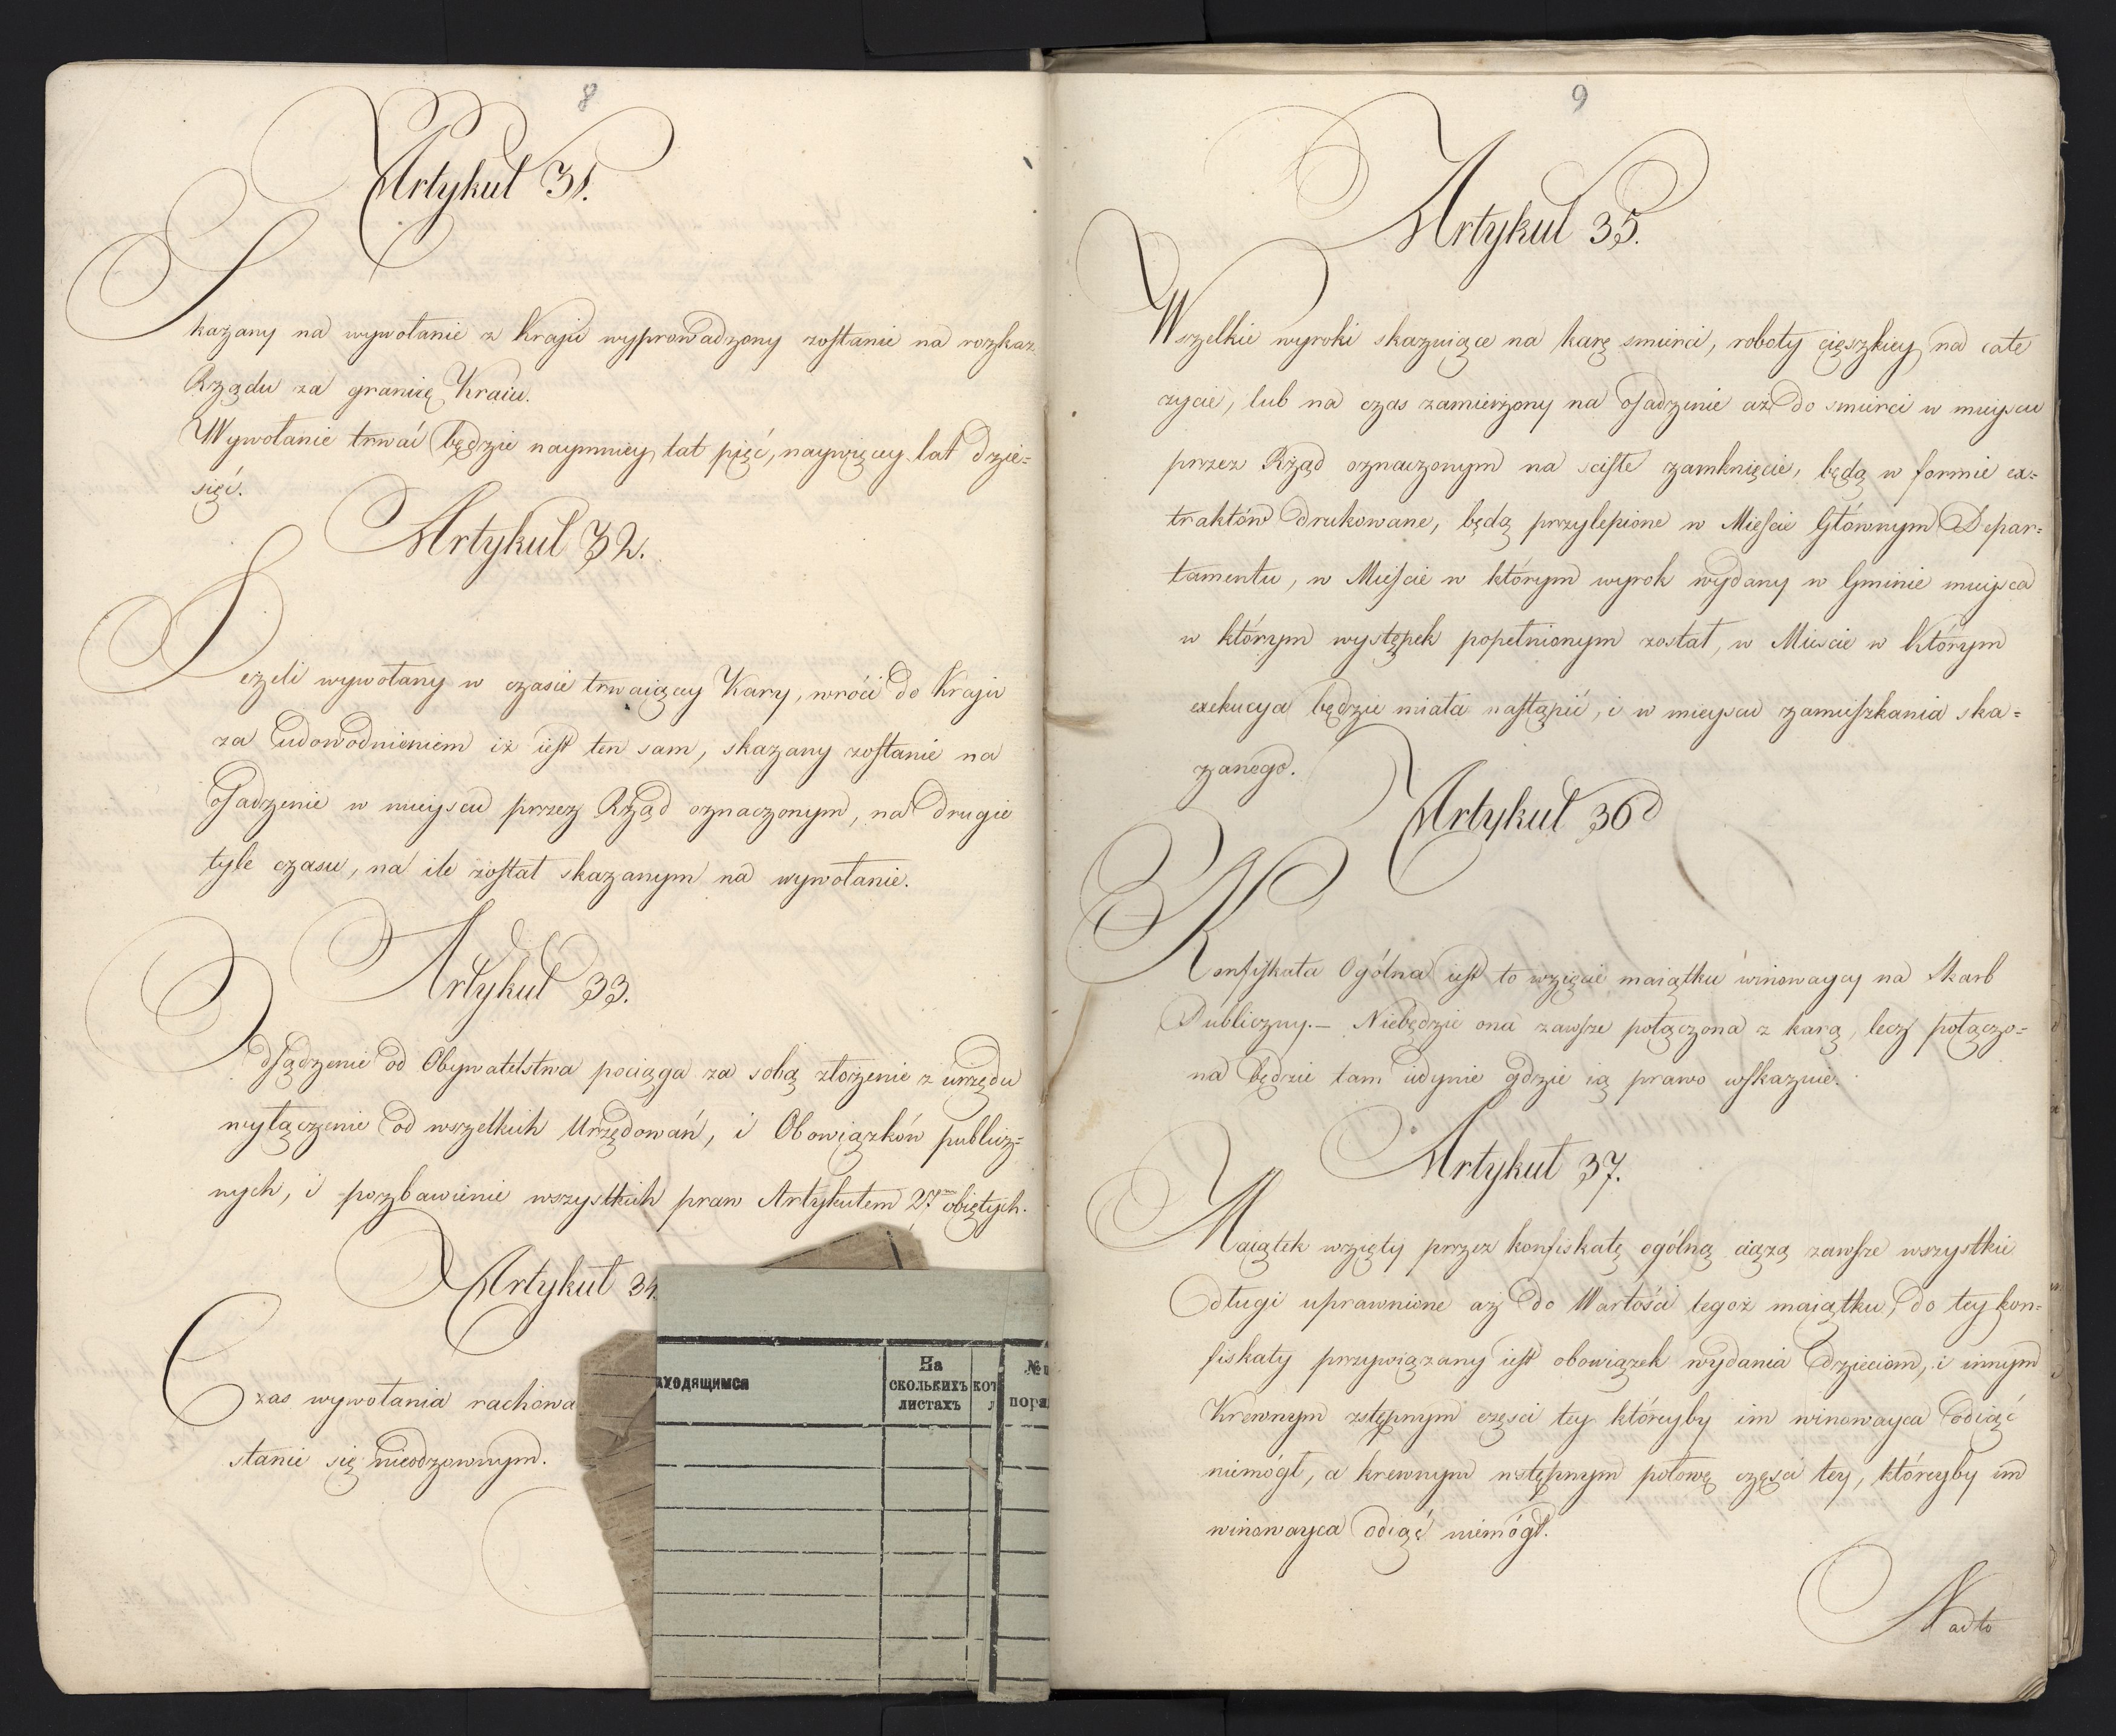 8
Artykuł 31.
Skazany na wywołanie z Kraju wyprowadzony zostanie na rozkaz
Rządu za granicę Kraiu.
Wywołanie trwać będzie naymniey lat pięć, naywięcey lat dzie=
sięć.
Artykuł 32.
Jeżeli wywołany w czasie trwaiącey Kary, wróci do Kraju
za udowodnieniem iż iest ten sam, skazany zostanie na
osadzenie w mieyscu przez Rząd oznaczonym, na drugie
tyle czasu, na ile został skazanym na wywołanie.
Artykuł 33.
Odsądzenie od Obywatelstwa pociąga za sobą złożenie z urzędu
wyłączenie od wszelkich Urzędowań, i Obowiązków publicz=
nych, i pozbawienie wszystkich praw Artykułem 27m obiętych.
Artykuł 34.
Czas wywołania rachowa
stanie się nieodzownym.
входящимся
На
сколькихъ
листахъ
кот
№
пора
9
Artykuł 35.
Wszelkie wyroki skazuiące na karę smierci, roboty cięszkiey na całe
zycie, lub na czas zamierzony na osadzenie aż do smierci w mieyscu
przez Rząd oznaczonym na scisłe zamknięcie, będą w formie ex=
traktów drukowane, będą przylepione w Miescie Głównym Depar=
tamentu, w Miescie w którym wyrok wydany w Gminie mieysca
w którym występek popełnionym został, w Miescie w którym
exekucya będzie miała nastąpić, i w mieyscu zamieszkania ska=
zanego.
Artykuł 36
Konfiskata Ogólna iest to wzięcie maiątku winowaycy na Skarb
Publiczny. — Niebędzie ona zawsze połączona z karą, lecz połączo=
na będzie tam iedynie gdzie ią prawo wskazuie.
Artykuł 37.
Maiątek wzięty przez konfiskatę ogólną ciążą zawsze wszystkie
długi uprawnione aż do Wartości tegoż maiątku, do tey kon=
fiskaty przywiązany iest obowiązek wydania dzieciom, i innym
Krewnym zstępnym częsci tey któreyby im winowayca odiąć
niemógł, a krewnym wstępnym połowę częsci tey, któreyby im
winowayca odiąć niemógł.
Nadto